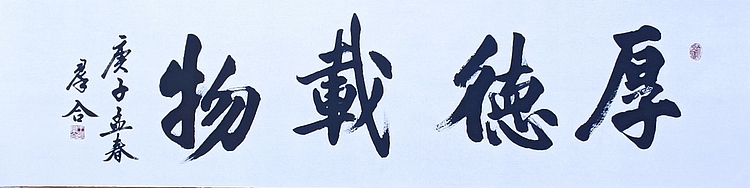 厚德載物
庚子孟春
羣合